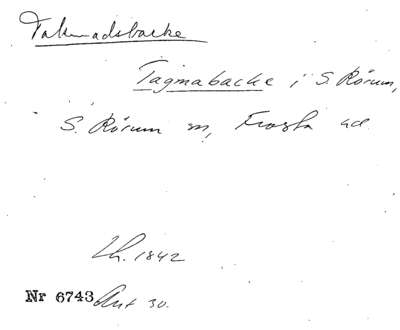 Takmadsbacke
Tagmabacke i S. Rörum,
S. Rörum sn, Frosta hd
Lh. 1842
Nr 6743 Ant 30.